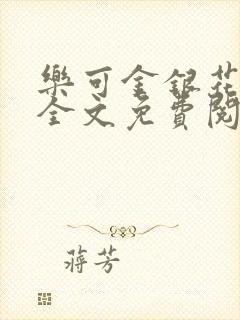 樂可金銀花
全文免費閱
蔣芳